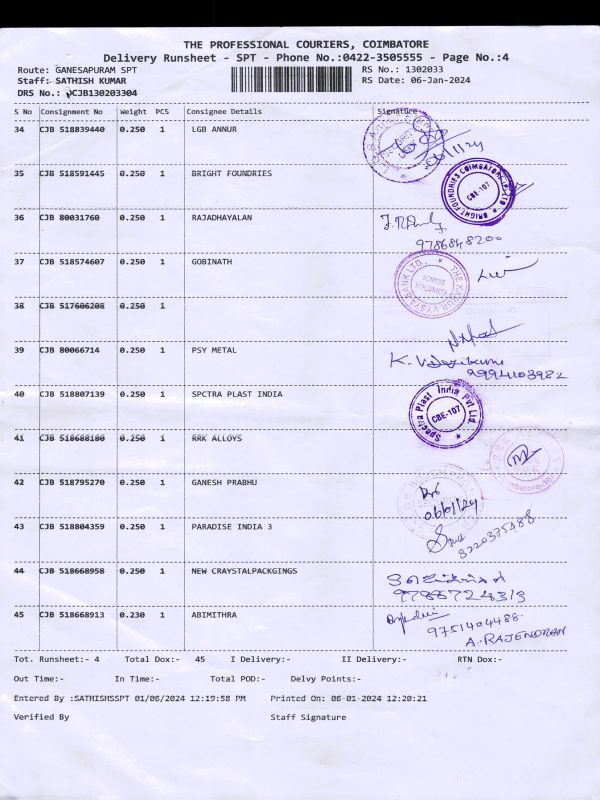 THE PROFESSIONAL COURIERS, COIMBATORE
Delivery Runsheet - SPT - Phone No.:0422-3505555 - Page No.:4
Route: GANESAPURAM SPT
RS No.: 1302033
Staff: SATHISH KUMAR
RS Date: 06-Jan-2024
DRS No.: CJB130203304
S No Consignment No Weight PCS Consignee Details Signature
34 CJB 518839440 0.250 1 LGB ANNUR
06/1/24
35 CJB 518591445 0.250 1 BRIGHT FOUNDRIES
BRIGHT FOUNDRIES COIMBATORE
CBE-107
36 CJB 80031760 0.250 1 RAJADHAYALAN
9786848200
37 CJB 518574607 0.250 1 GOBINATH
THE KARUR VYSYA BANK LTD.,
BRANCH
38 CJB 517606208 0.250 1
39 CJB 80066714 0.250 1 PSY METAL
9994103982
40 CJB 518807139 0.250 1 SPCTRA PLAST INDIA
Spectra Plast India Pvt Ltd
CBE-107
41 CJB 518688180 0.250 1 RRK ALLOYS
42 CJB 518795270 0.250 1 GANESH PRABHU
06/01/24
43 CJB 518804359 0.250 1 PARADISE INDIA 3
8220375488
44 CJB 518668958 0.250 1 NEW CRAYSTALPACKGINGS
45 CJB 518668913 0.230 1 ABIMITHRA
9751404488.
A. RAJENDRAN
Tot. Runsheet:- 4 Total Dox:- 45 I Delivery:- II Delivery:- RTN Dox:-
Out Time:- In Time:- Total POD:- Delvy Points:-
Entered By :SATHISHSSPT 01/06/2024 12:19:58 PM Printed On: 06-01-2024 12:20:21
Verified By Staff Signature